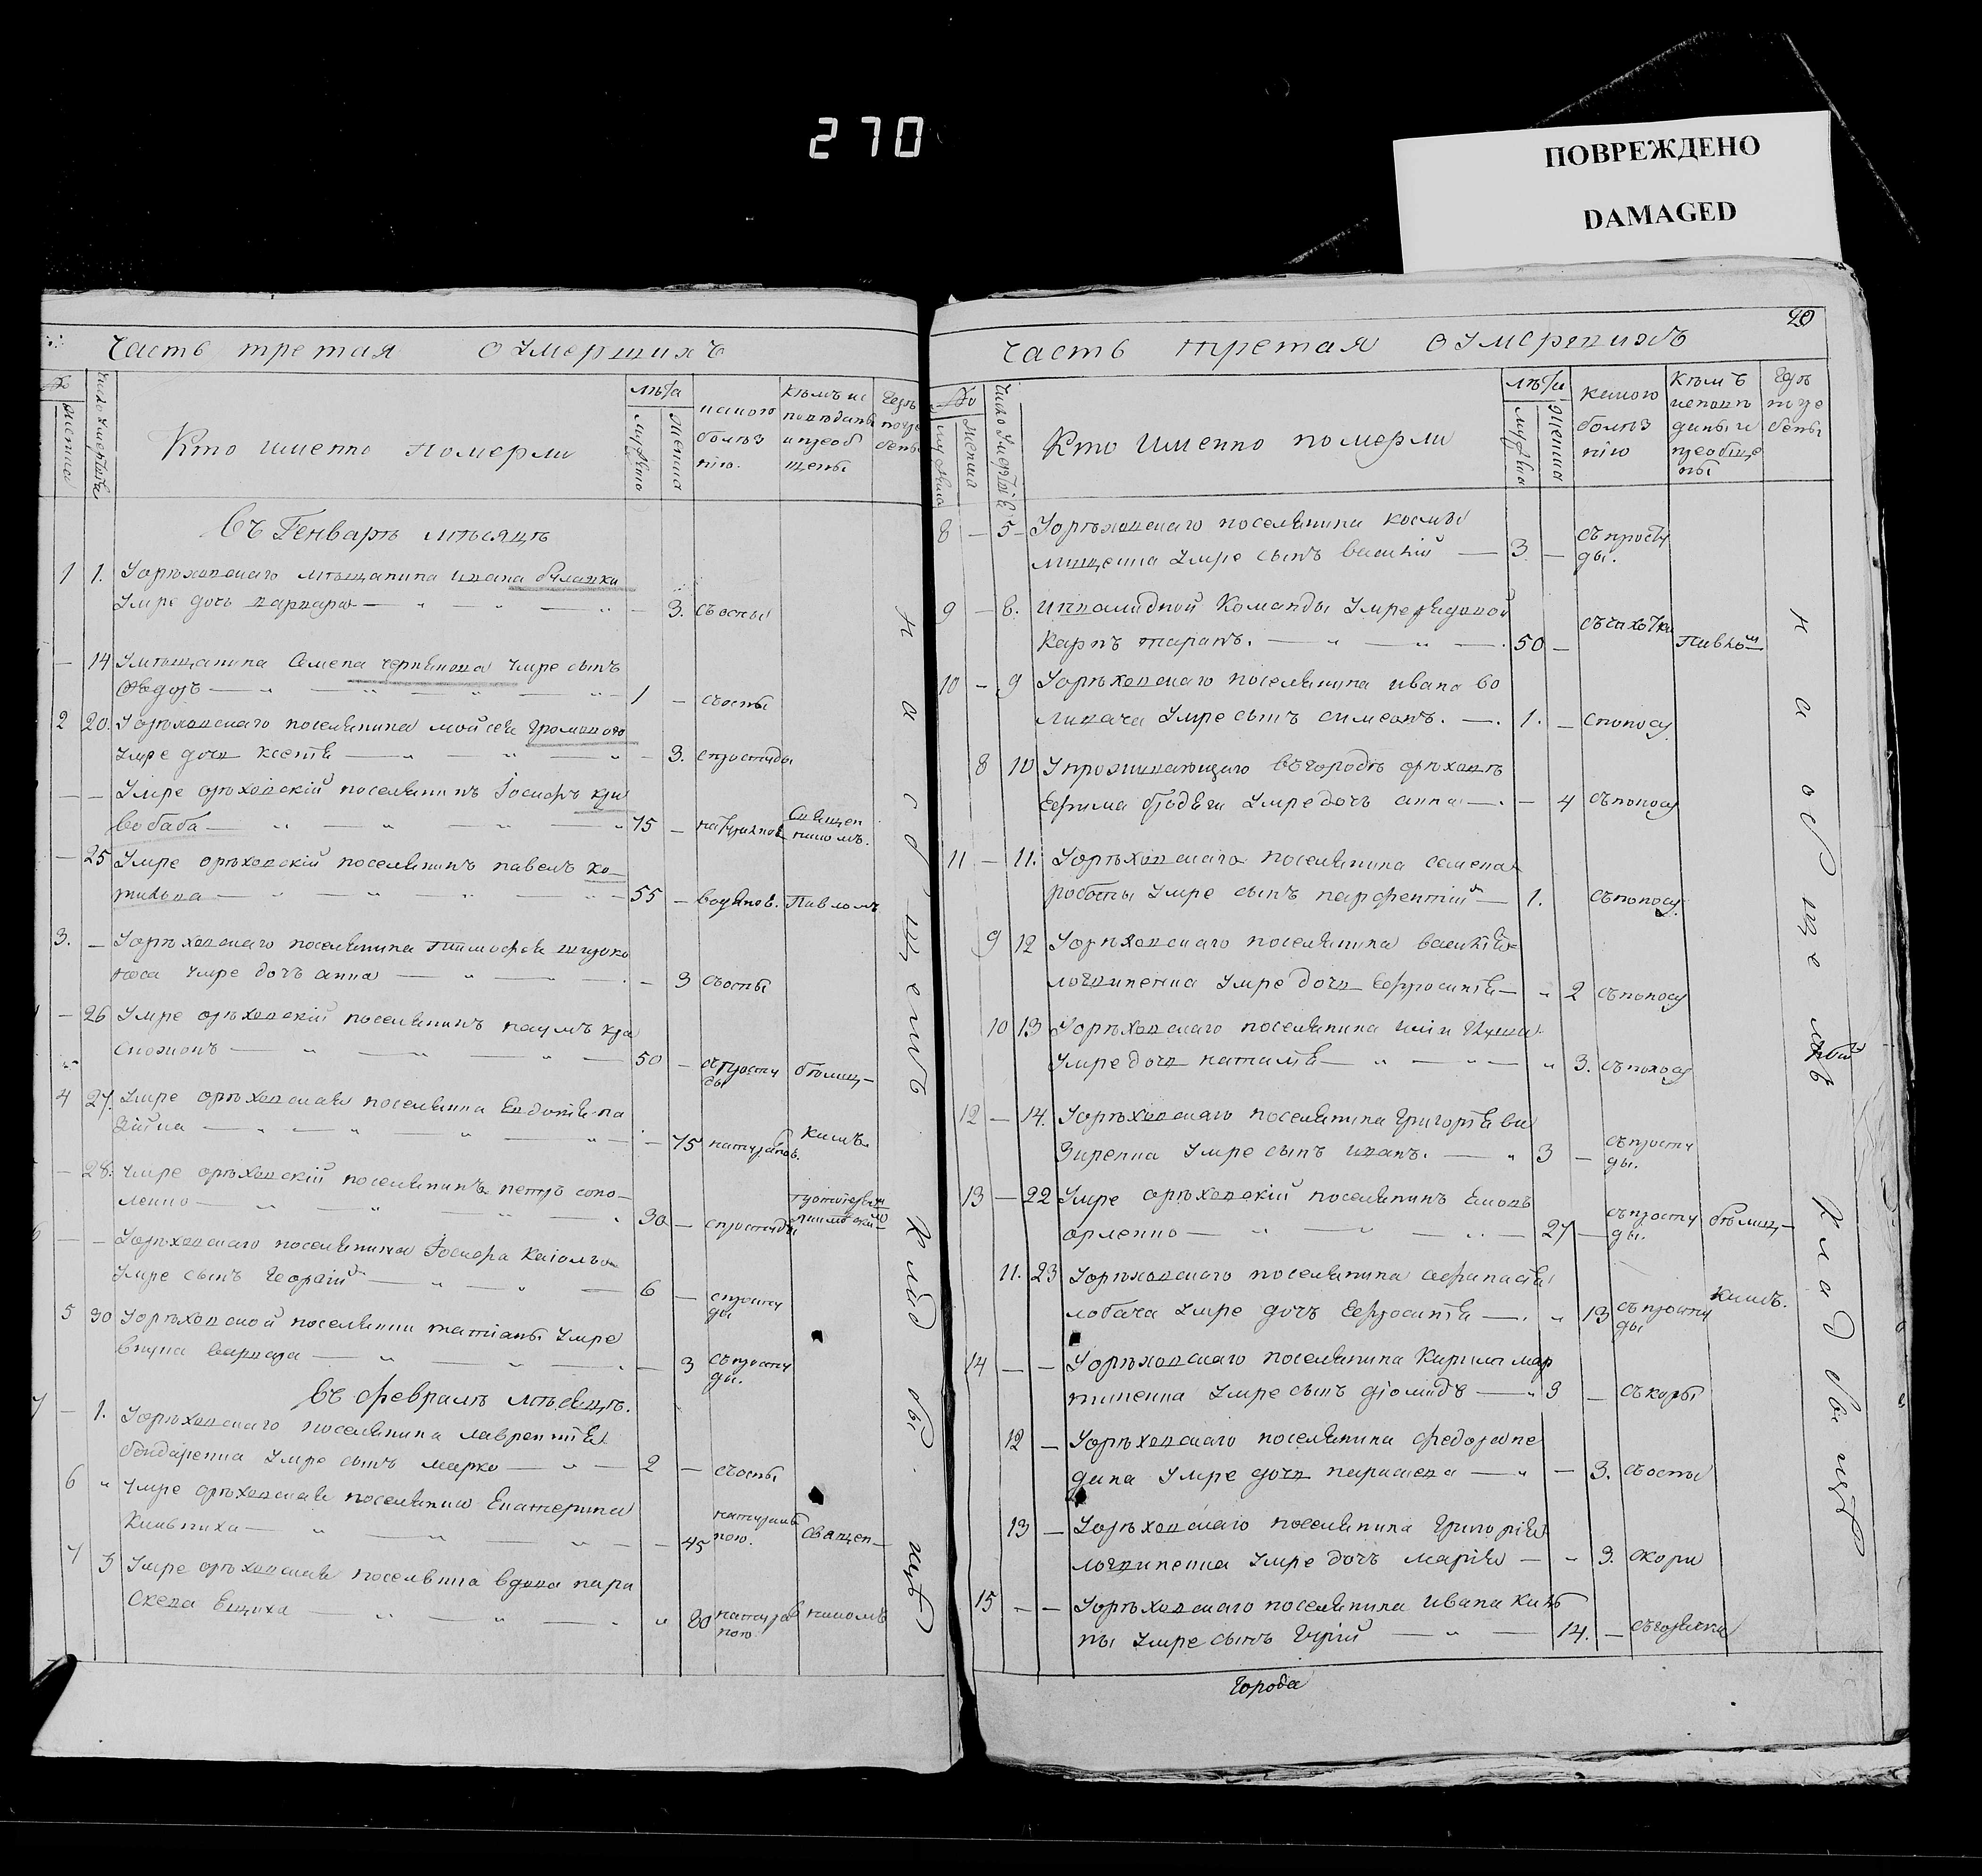 270
ПОВРЕЖДЕНО
DAMAGED
Часть третая о умершихъ
№
Женска
Число умертвія
Кто именно померли
лѣта
мужска
Женска
какою
болѣз
нію.
Кѣмъ ис
повѣданы
и преоб
щены
Гдѣ
погре
бены
Въ Генварѣ мѣсяцѣ
1 1. Уорѣховскаго мѣщанина ивана булавки
Умре дочь варвара — 3. съоспы
— 14 Умѣщанина Семена чернявова Умре сынъ
Ѳедоръ — 1 — съоспы
2 20. Уорѣховскаго поселянина мойсея громового
Умре дочь ксенія — 3. спростуды
— — Умре орѣховскій поселянинъ Іосифъ кри
вобаба — 75 — Священ
никомъ.
— 25 Умре орѣховскій поселянинъ павелъ ко
55 — водянов. Павломъ
3. — Уорѣховскаго поселянина тимофея широко
носа Умре дочь анна — 3 съоспы
— 26 Умре орѣховскій поселянинъ наумъ кра
сножонъ — 50 — съпросту
ды бѣлиц—
4 27. Умре орѣховская поселянка Евдокія па
— 75 натуралнов. кимъ
— 28. Умре орѣховскій поселянинъ петръ соко
ленко — 30 — спростуды
— — Уорѣховскаго поселянина Іосифа
Умре сынъ Георгій — 6 — спросту
ды
5 30 Уорѣховской поселянки татіаны Умре
внука варвара — 3 съпросту
ды.
Въ февралѣ мѣсяцѣ.
7 — 1. Уорѣховскаго поселянина лаврентія
бондаренка Умре сынъ марко — 2 — съоспы
6 " Умре орѣховская поселянка Екатерина
— 45 натурал
ною. Священ—
7 3 Умре орѣховская поселянка вдова пара
скева Ещиха — " 80 натурал
ною. никомъ
на общемъ кладбыщѣ
29
Часть третая о умершихъ
№
мужска
Женска
Число умертвія
Кто именно померли
лѣта
мужска
Женска
какою
болѣз
нію
Кѣмъ
исповѣ
даны и
преобще
ны
Гдѣ
погре
бены
8 — 5 Уорѣховскаго поселянина космы
мищенка Умре сынъ василій — 3 — съпросту
ды.
9 — 6. инвалидной Команды Умре рядовой
Карпъ таранъ. — 50 — съчахотки Павло—
10 — 9 Уорѣховскаго поселянина ивана во
ликача Умре сынъ симеонъ. — 1. — споносу
8 10 Упроживающаго въгородѣ орѣховѣ
Ефима бродяги Умре дочь анна — 4 съпоносу
11 — 11. Уорѣховскаго поселянина семена
роботы Умре сынъ парфентій — 1. съпоносу
9 12 Уорѣховскаго поселянина василія
логвиненка Умре дочь Ефросинія — 2 съпоносу
10 13 Уорѣховскаго поселянина иліи
Умре дочь наталія — " 3. съпоносу
12 — 14. Уорѣховскаго поселянина Григорія ви
зиренка Умре сынъ иванъ. — " 3 — съпросту
ды.
13 — 22 Умре орѣховскій поселянинъ
орленко — 27 — съпросту
ды. бѣлиц—
11. 23 Уорѣховскаго поселянина афанасія
лобача Умре дочь Ефросинія — " 13 съпросту
ды кимъ.
14 — — Уорѣховскаго поселянина Кирила мар
тиненка Умре сынъ діомидъ — 3 — съкоры
12 — Уорѣховскаго поселянина федора не
дина Умре дочь параскева — " — 3. съоспы
13 — Уорѣховскаго поселянина Григорія
логвиненка Умре дочь марія — " 3. скори
15 — — Уорѣховскаго поселянина ивана
Умре сынъ Гурій — " — 14. — съгорячки
на общемъ кладбыщѣ
Города